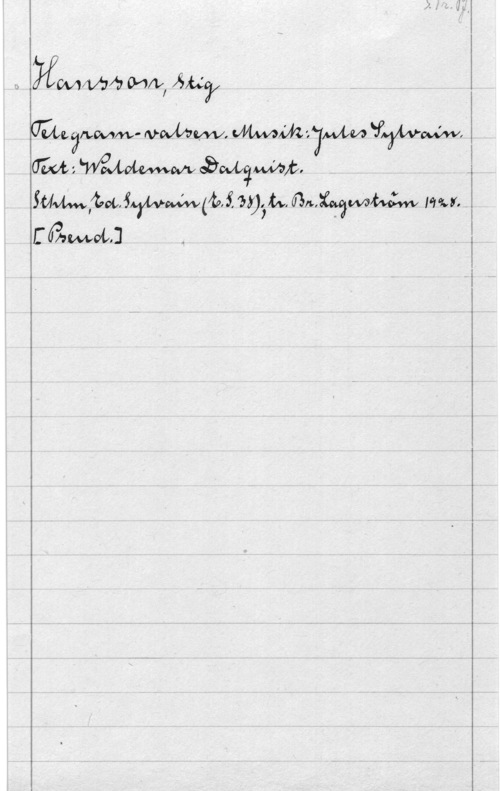 Hansson, Stig
Telegram-valsen. Musik: Jules Sylvain.
Text: Waldemar Dalquist.
Sthlm, Ed. Sylvain (E.S. 38); tr. Br. Lagerström 1928.
[Pseud.]